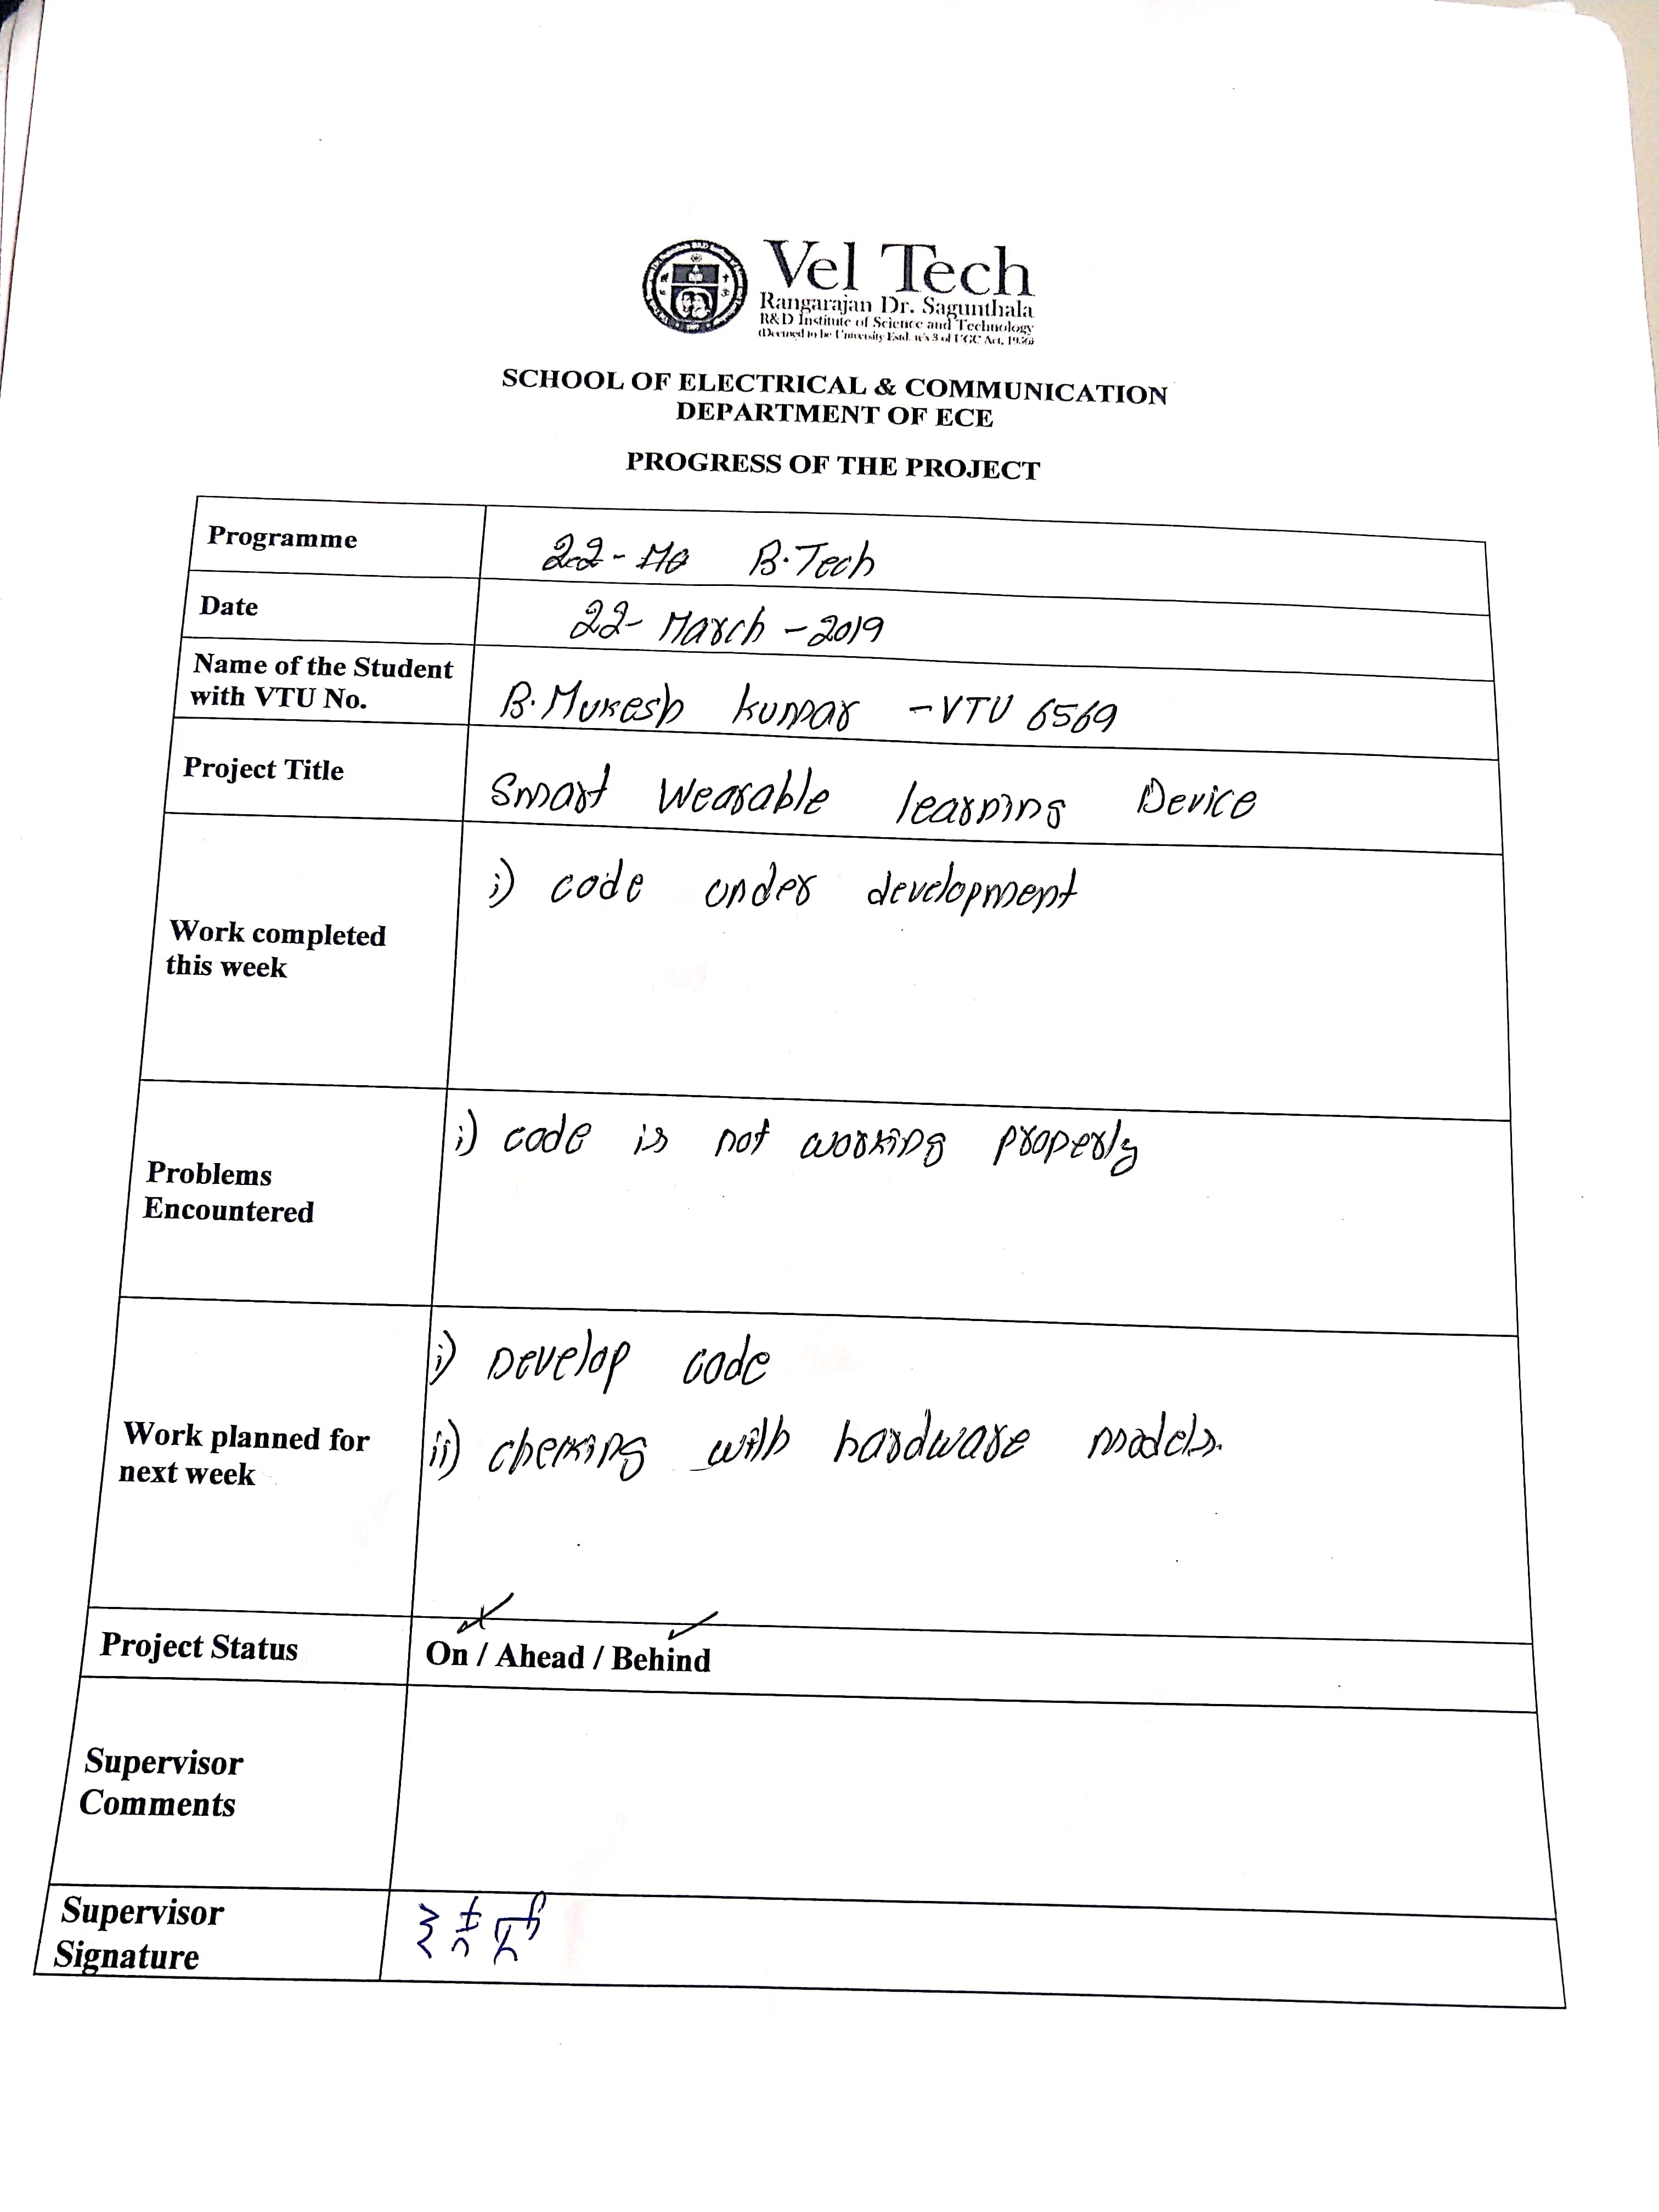 Vel Tech
Rangarajan Dr. Sagunthala
R&D Institute of Science and Technology
(Deemed to be University Estd. u/s 3 of UGC Act, 1956)
SCHOOL OF ELECTRICAL & COMMUNICATION
DEPARTMENT OF ECE
PROGRESS OF THE PROJECT
Programme
B.Tech
Date
22- March - 2019
Name of the Student
with VTU No.
B.Mukesh kumar - VTU 6569
Project Title
Smart Wearable learning Device
Work completed
this week
i) code under development
Problems
Encountered
i) code is not working properly
Work planned for
next week
i) Develop code
ii) cheking with hardware models.
Project Status
On / Ahead / Behind
Supervisor
Comments
Supervisor
Signature